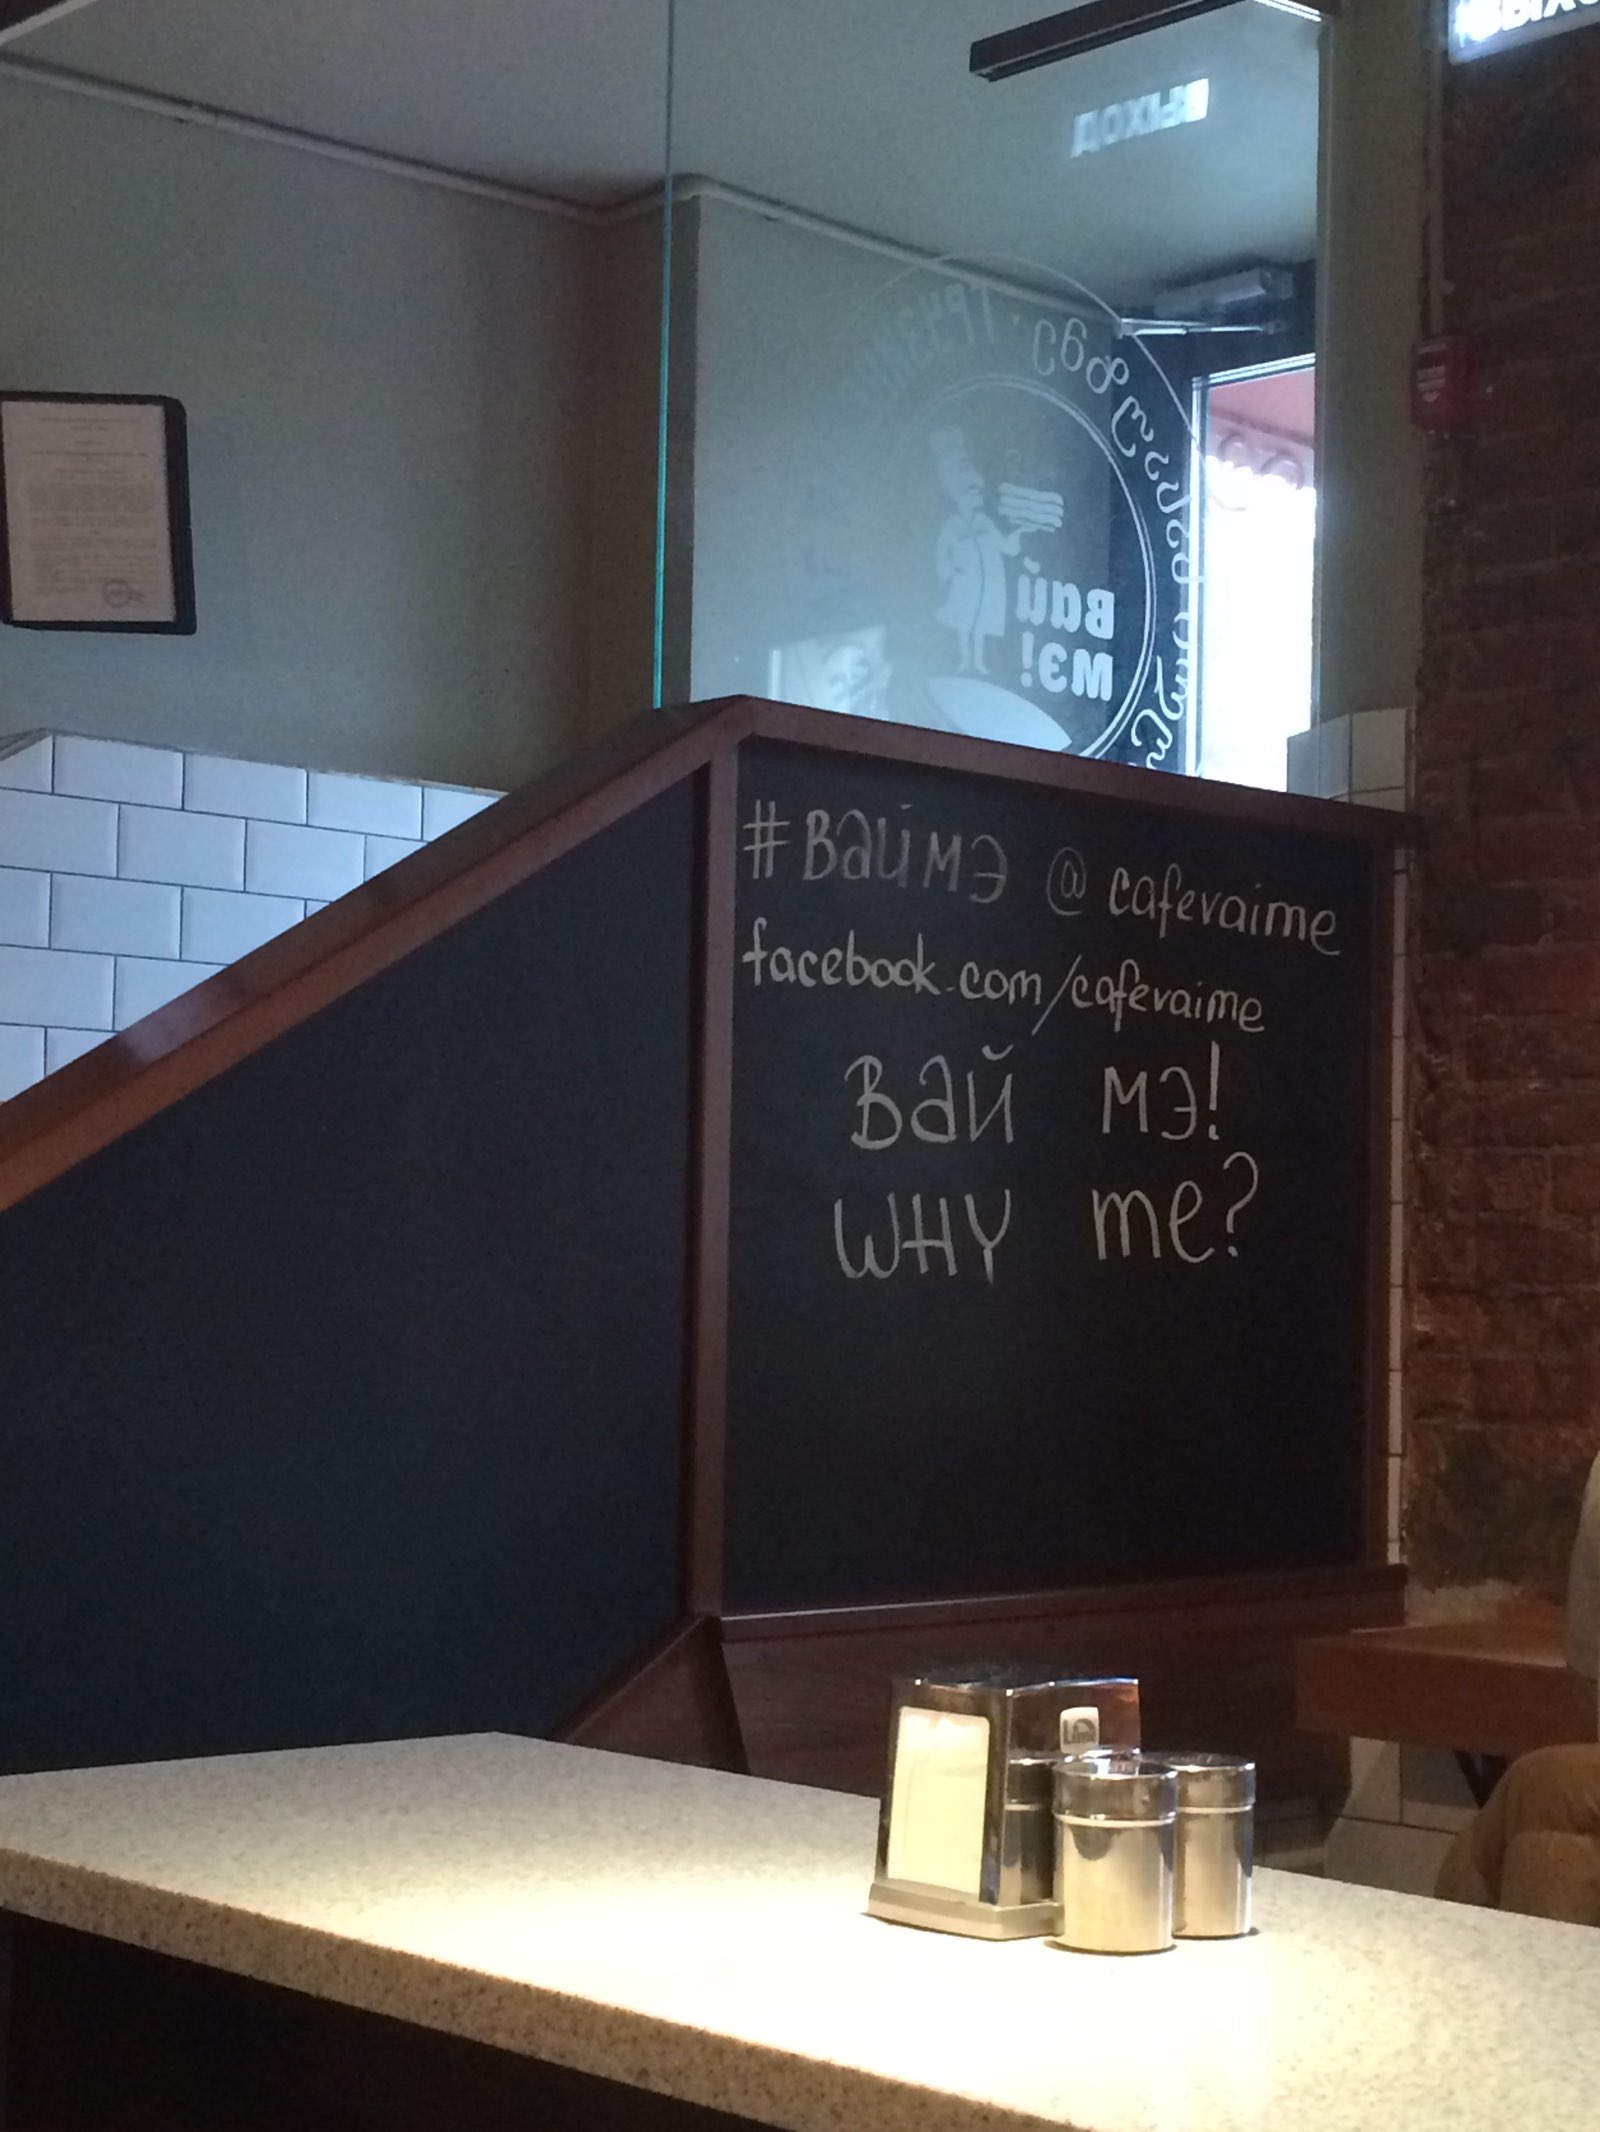 ВЫХОД
вай
мэ!
#ваймэ @cafevaime
facebook.com/cafevaime
вай мэ!
WHY me?